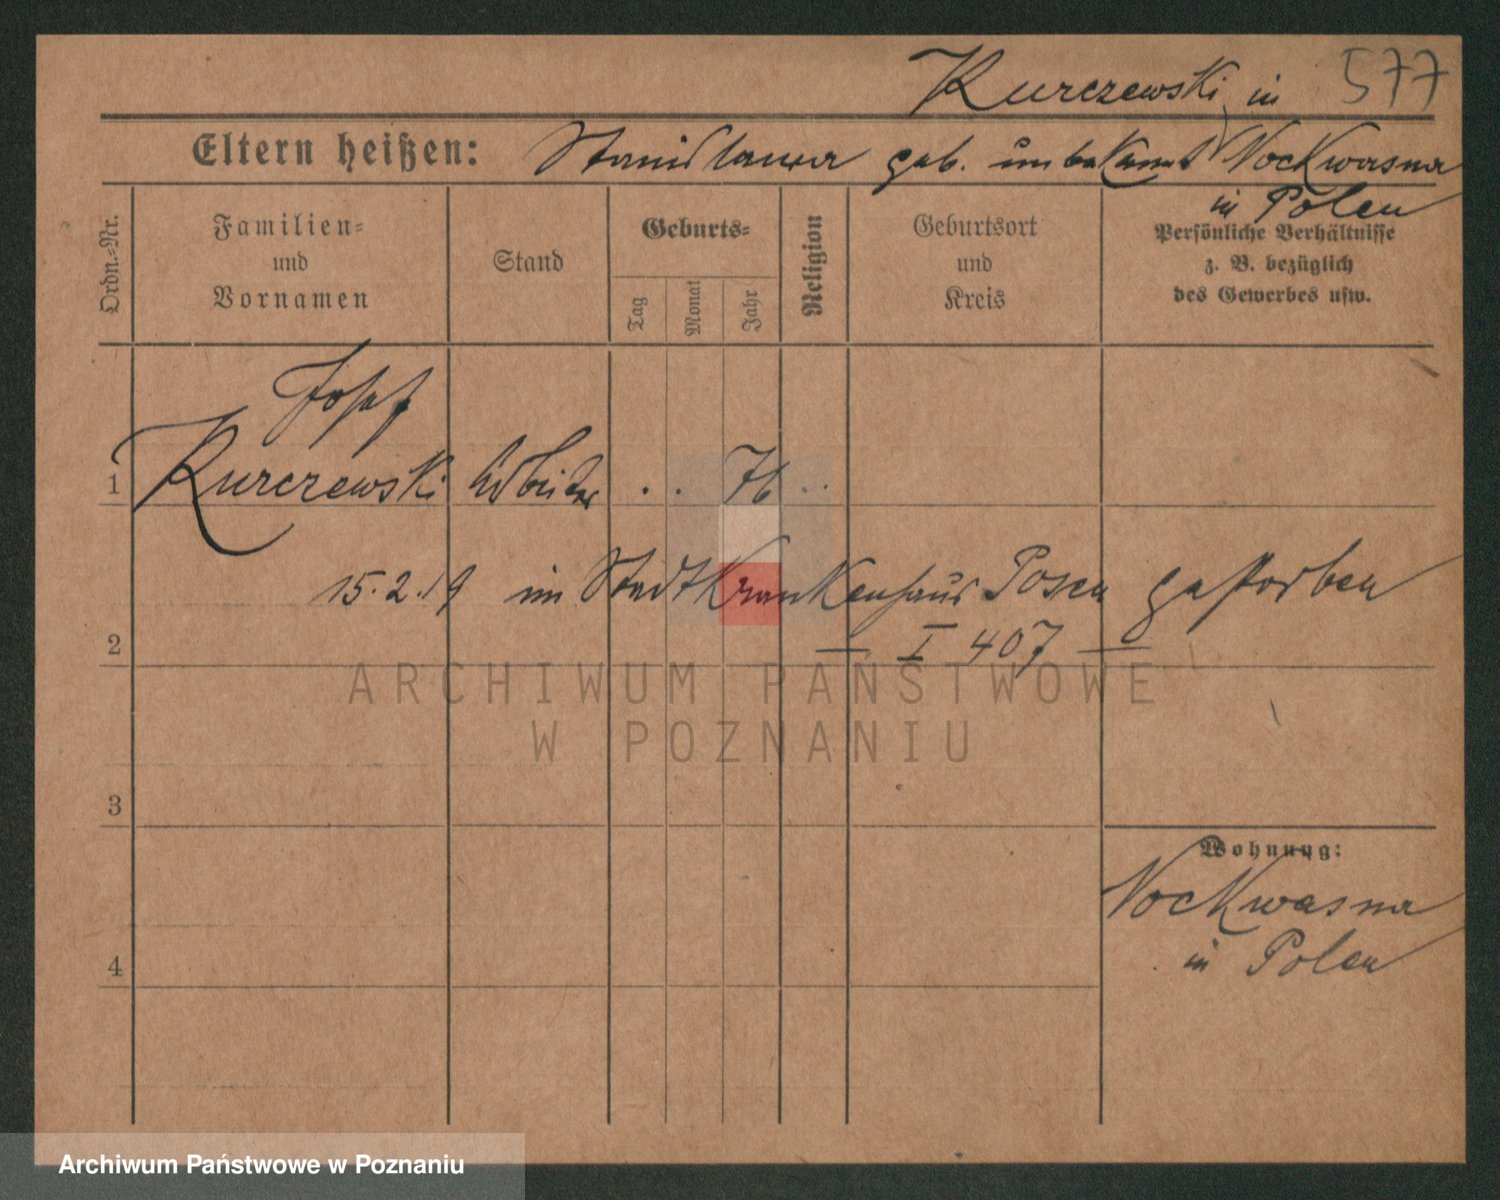 577
Kurczewski in
Eltern heißen: Stanislawa geb. unbekannt Nockwasna
in Polen
Ordn.-Nr.
Familien-
und
Vornamen
Stand
Geburts-
Tag
Monat
Jahr
Religion
Geburtsort
und
Kreis
Persönliche Verhältnisse
z. B. bezüglich
des Gewerbes usw.
Josef
1 Kurczewski Arbeiter . . 76 . .
15.2.19 im Stadtkrankenhaus Posen gestorben
2 — I 407 —
ARCHIWUM PAŃSTWOWE
W POZNANIU
3
Wohnung:
Nockwasna
4 in Polen
Archiwum Państwowe w Poznaniu